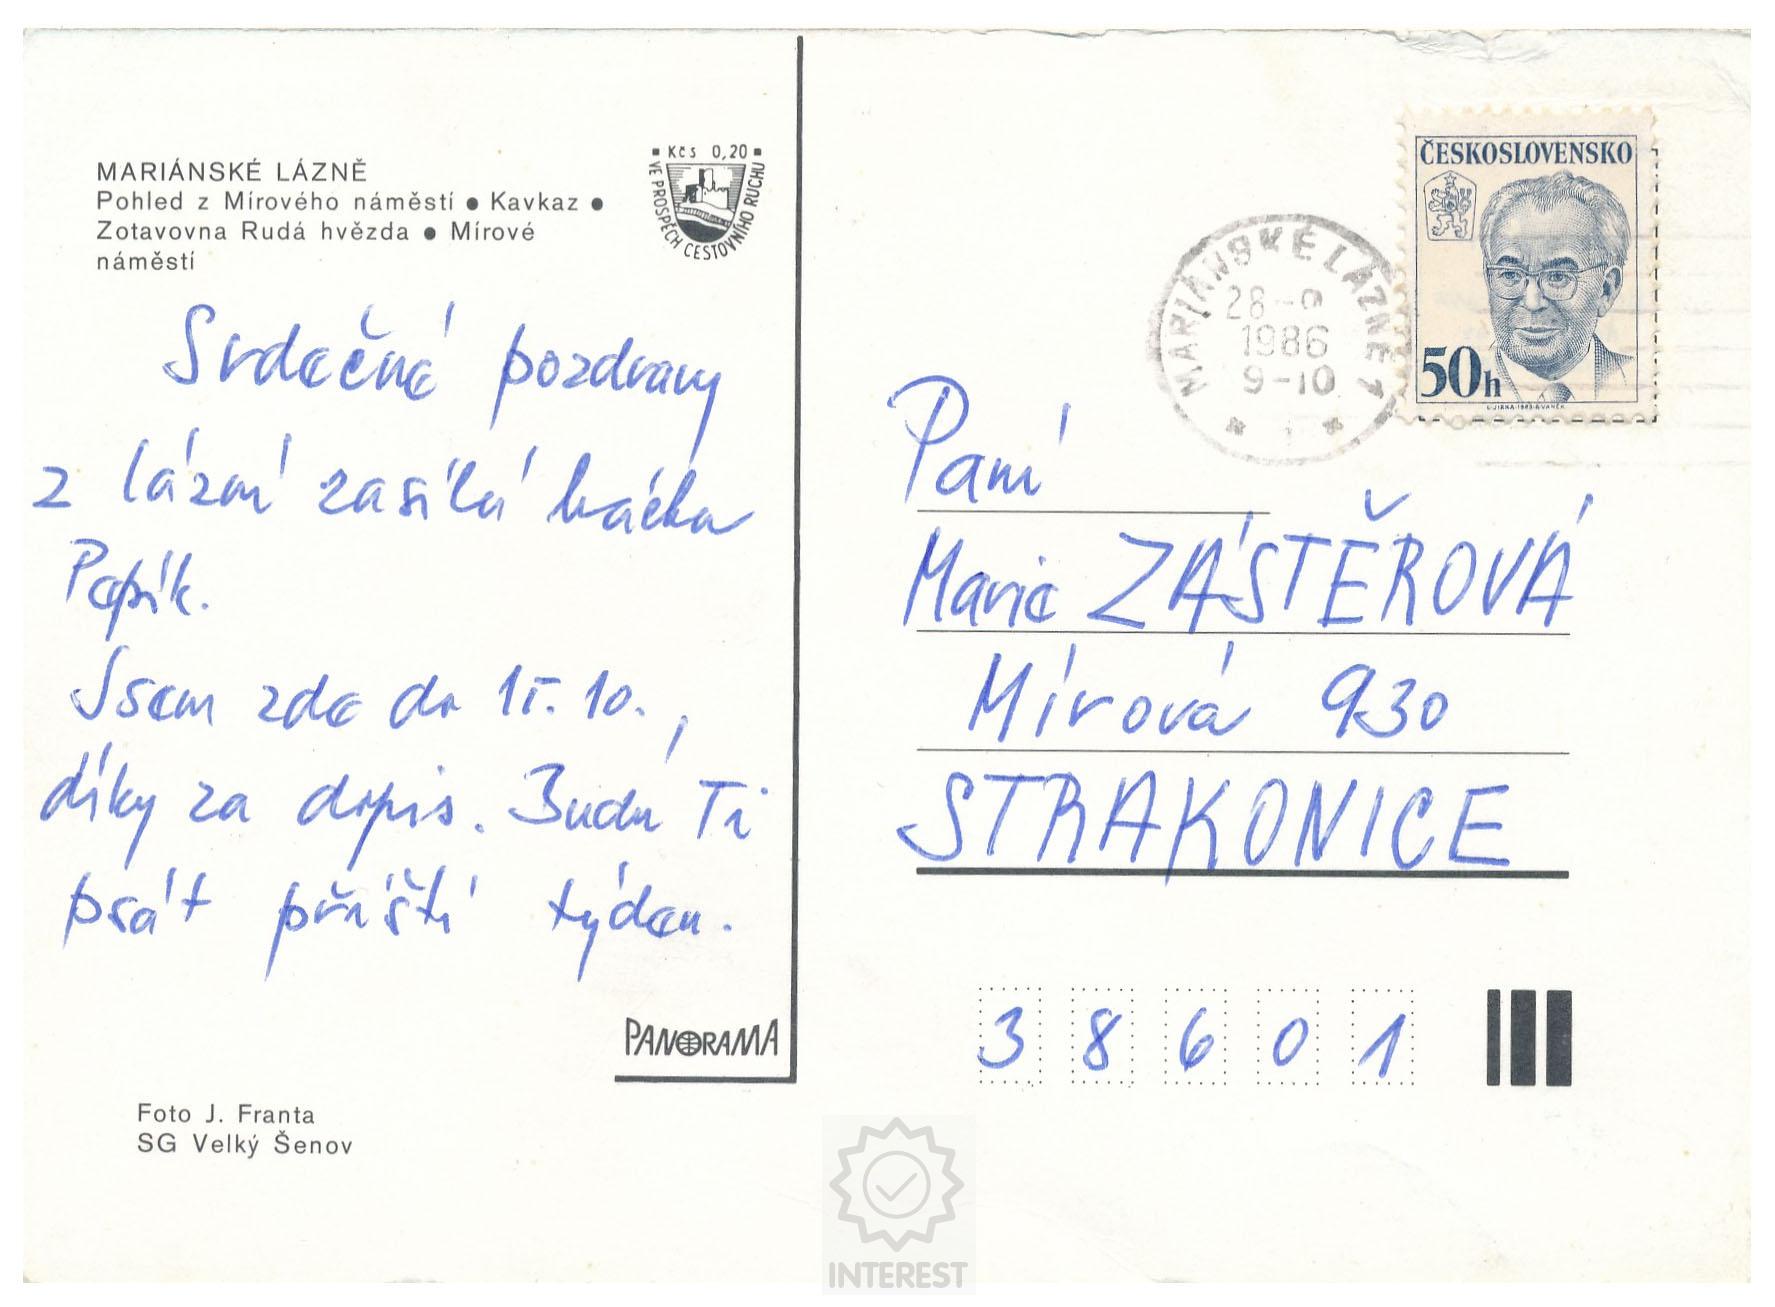 MARIÁNSKÉ LÁZNĚ
Pohled z Mírového náměstí ● Kavkaz ●
Zotavovna Rudá hvězda ● Mírové
náměstí
Kčs 0,20
VE PROSPĚCH CESTOVNÍHO RUCHU
Srdečné pozdravy
z lázní zasílá
Pepík.
Jsem zde do 15.10.,
díky za dopis. Budu Ti
psát příští týden.
PANORAMA
Foto J. Franta
SG Velký Šenov
ČESKOSLOVENSKO
50h
MARIÁNSKÉ LÁZNĚ 1
28
1986
9-10
Paní
Marie ZÁSTĚROVÁ
Mírová 930
STRAKONICE
38601
INTEREST